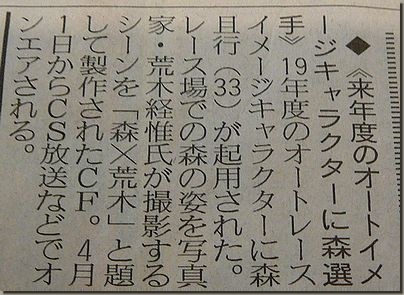 ◆《来年度のオートイメ
ージキャラクターに森選
手》19年度のオートレース
イメージキャラクターに森
且行（33）が起用された。
レース場での森の姿を写真
家・荒木経惟氏が撮影する
シーンを「森×荒木」と題
して製作されたCF。4月
1日からCS放送などでオ
ンエアされる。